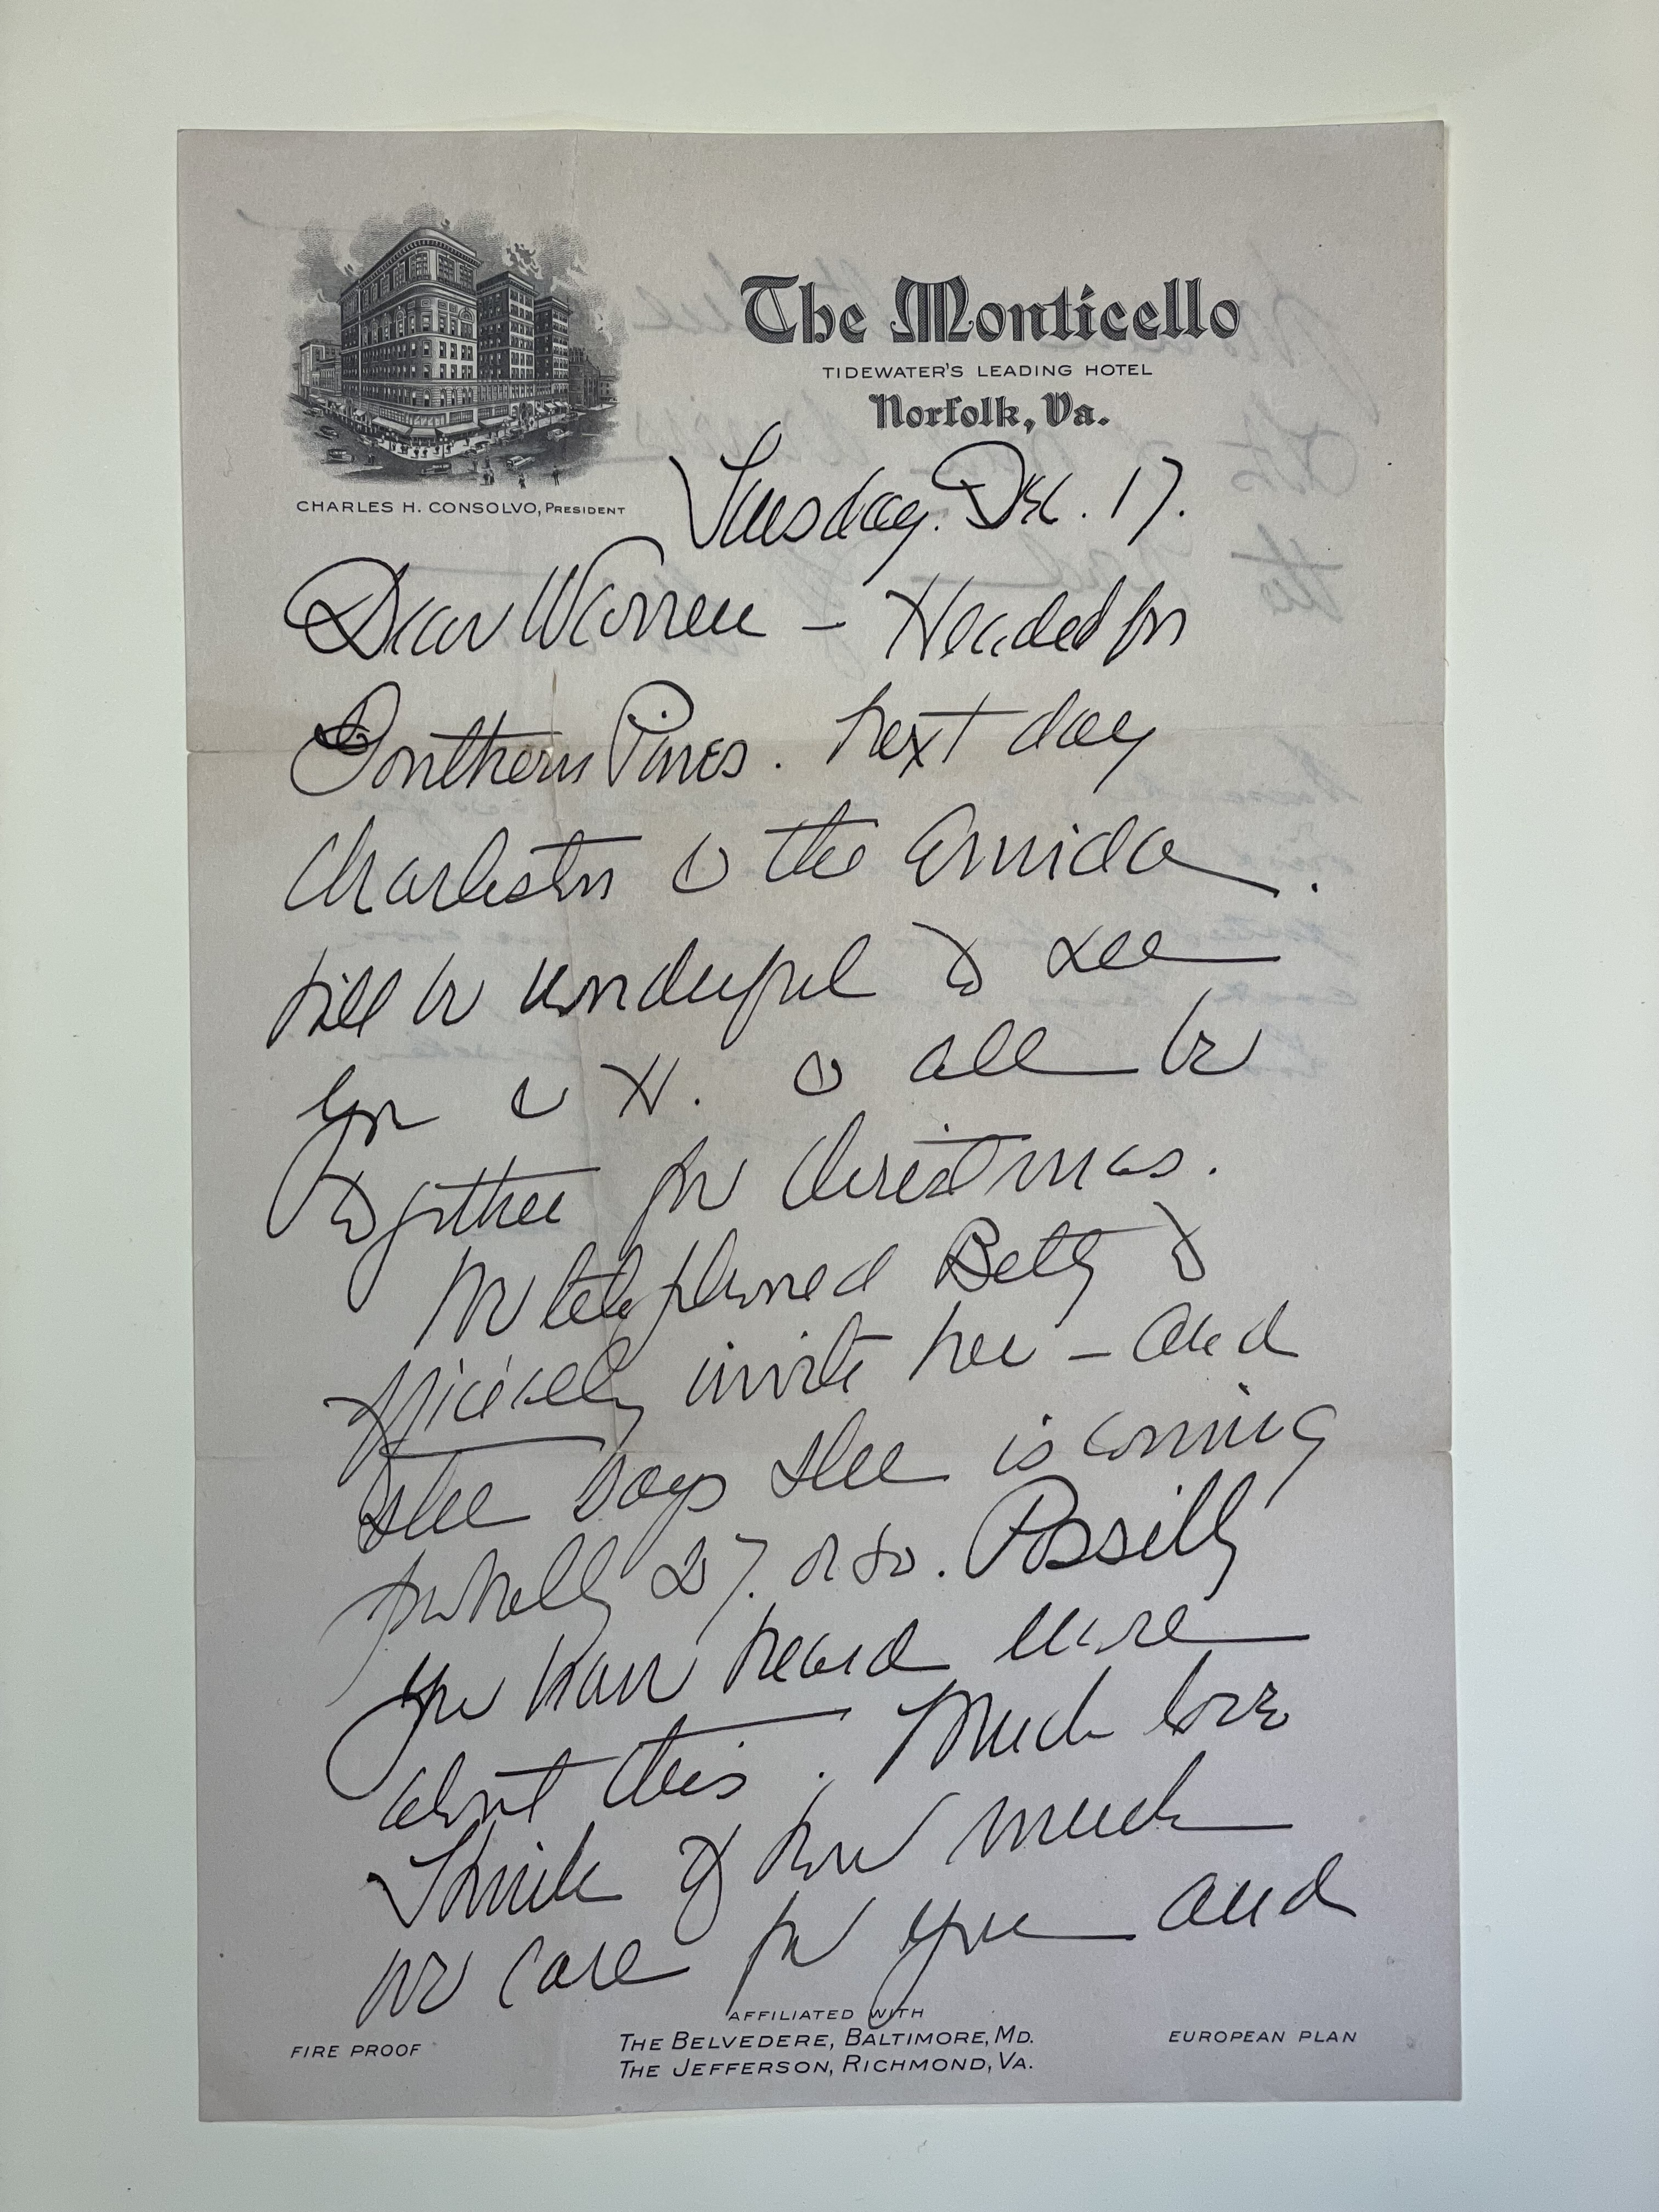 The Monticello
TIDEWATER'S LEADING HOTEL
Norfolk, Va.
CHARLES H. CONSOLVO, PRESIDENT
Tuesday. Dec. 17.
Dear Warren – Headed for
Southern Pines. Next day
Charleston & the
Will be wonderful to see
you & H. & all be
together for Christmas.
We telephoned Betty to
specially invite her – and
she says she is coming
probably 27. or so. Possibly
you have heard more
about this. Much love
Think of how much
we care for you and
AFFILIATED WITH
FIRE PROOF THE BELVEDERE, BALTIMORE, MD. EUROPEAN PLAN
THE JEFFERSON, RICHMOND, VA.